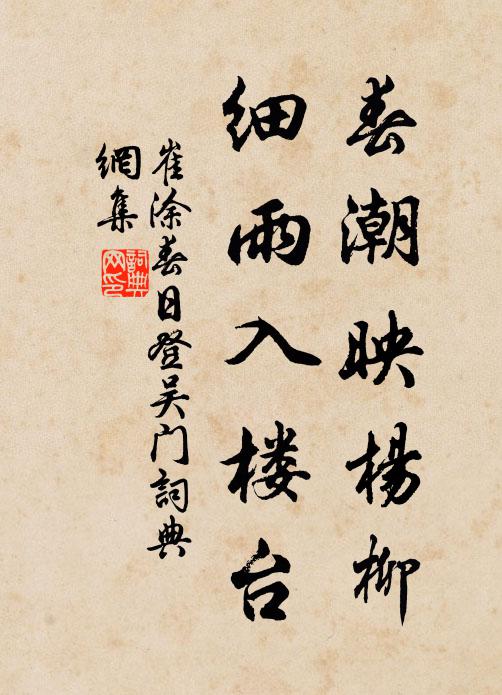 春潮映楊柳
细雨入楼台
崔涂春日登吴门詞典
網集
詞典
网印